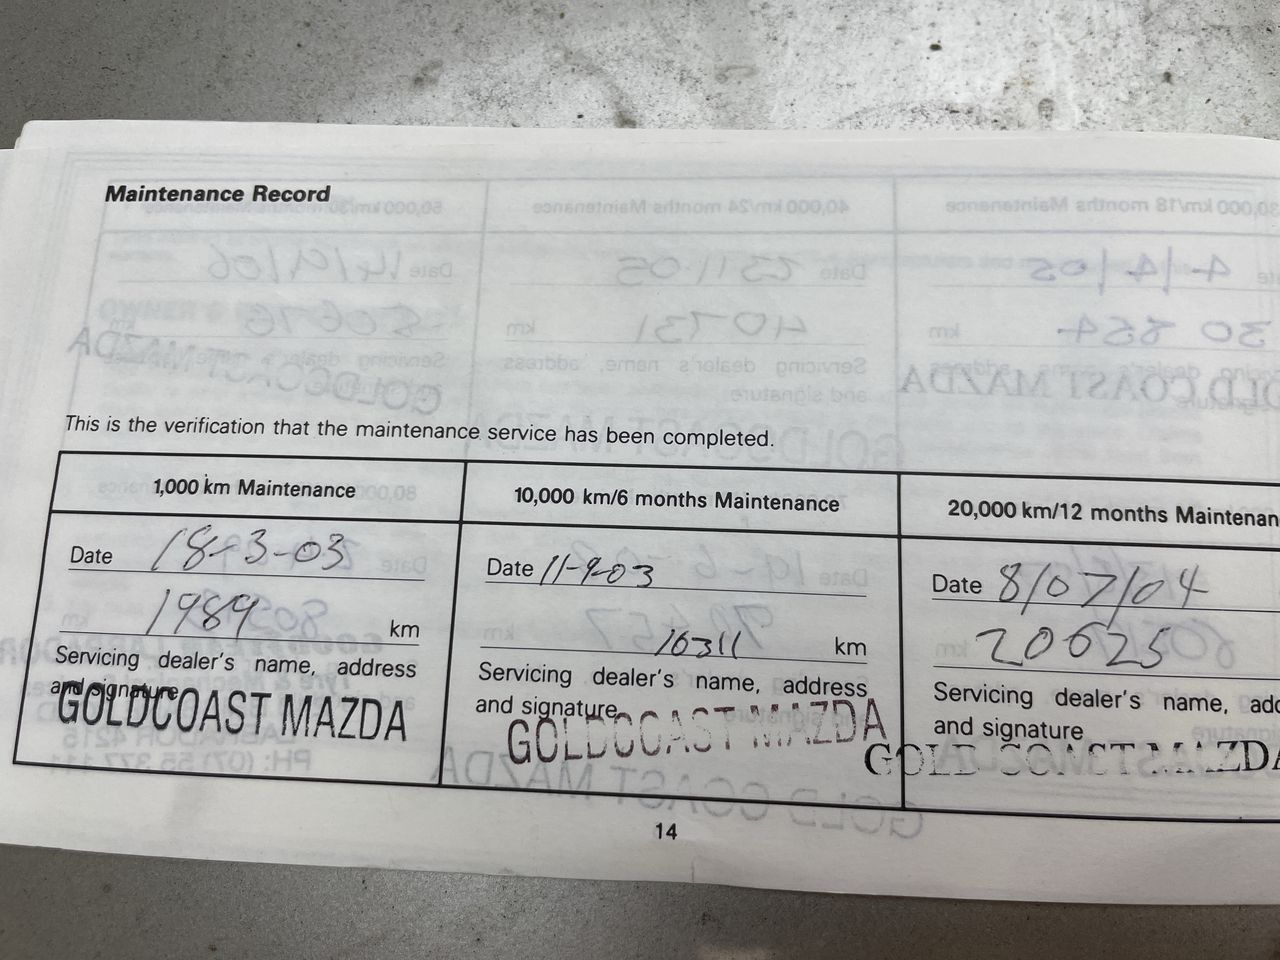 Maintenance Record
This is the verification that the maintenance service has been completed.
1,000 km Maintenance
Date 18-3-03
1989 km
Servicing dealer's name, address
and signature
GOLDCOAST MAZDA
10,000 km/6 months Maintenance
Date 11-9-03
10311 km
Servicing dealer's name, address
and signature
GOLDCOAST MAZDA
20,000 km/12 months Maintenan
Date 8/07/04
20625
Servicing dealer's name, add
and signature
GOLD COAST MAZDA
14